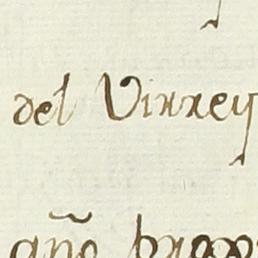 del Virrey
año